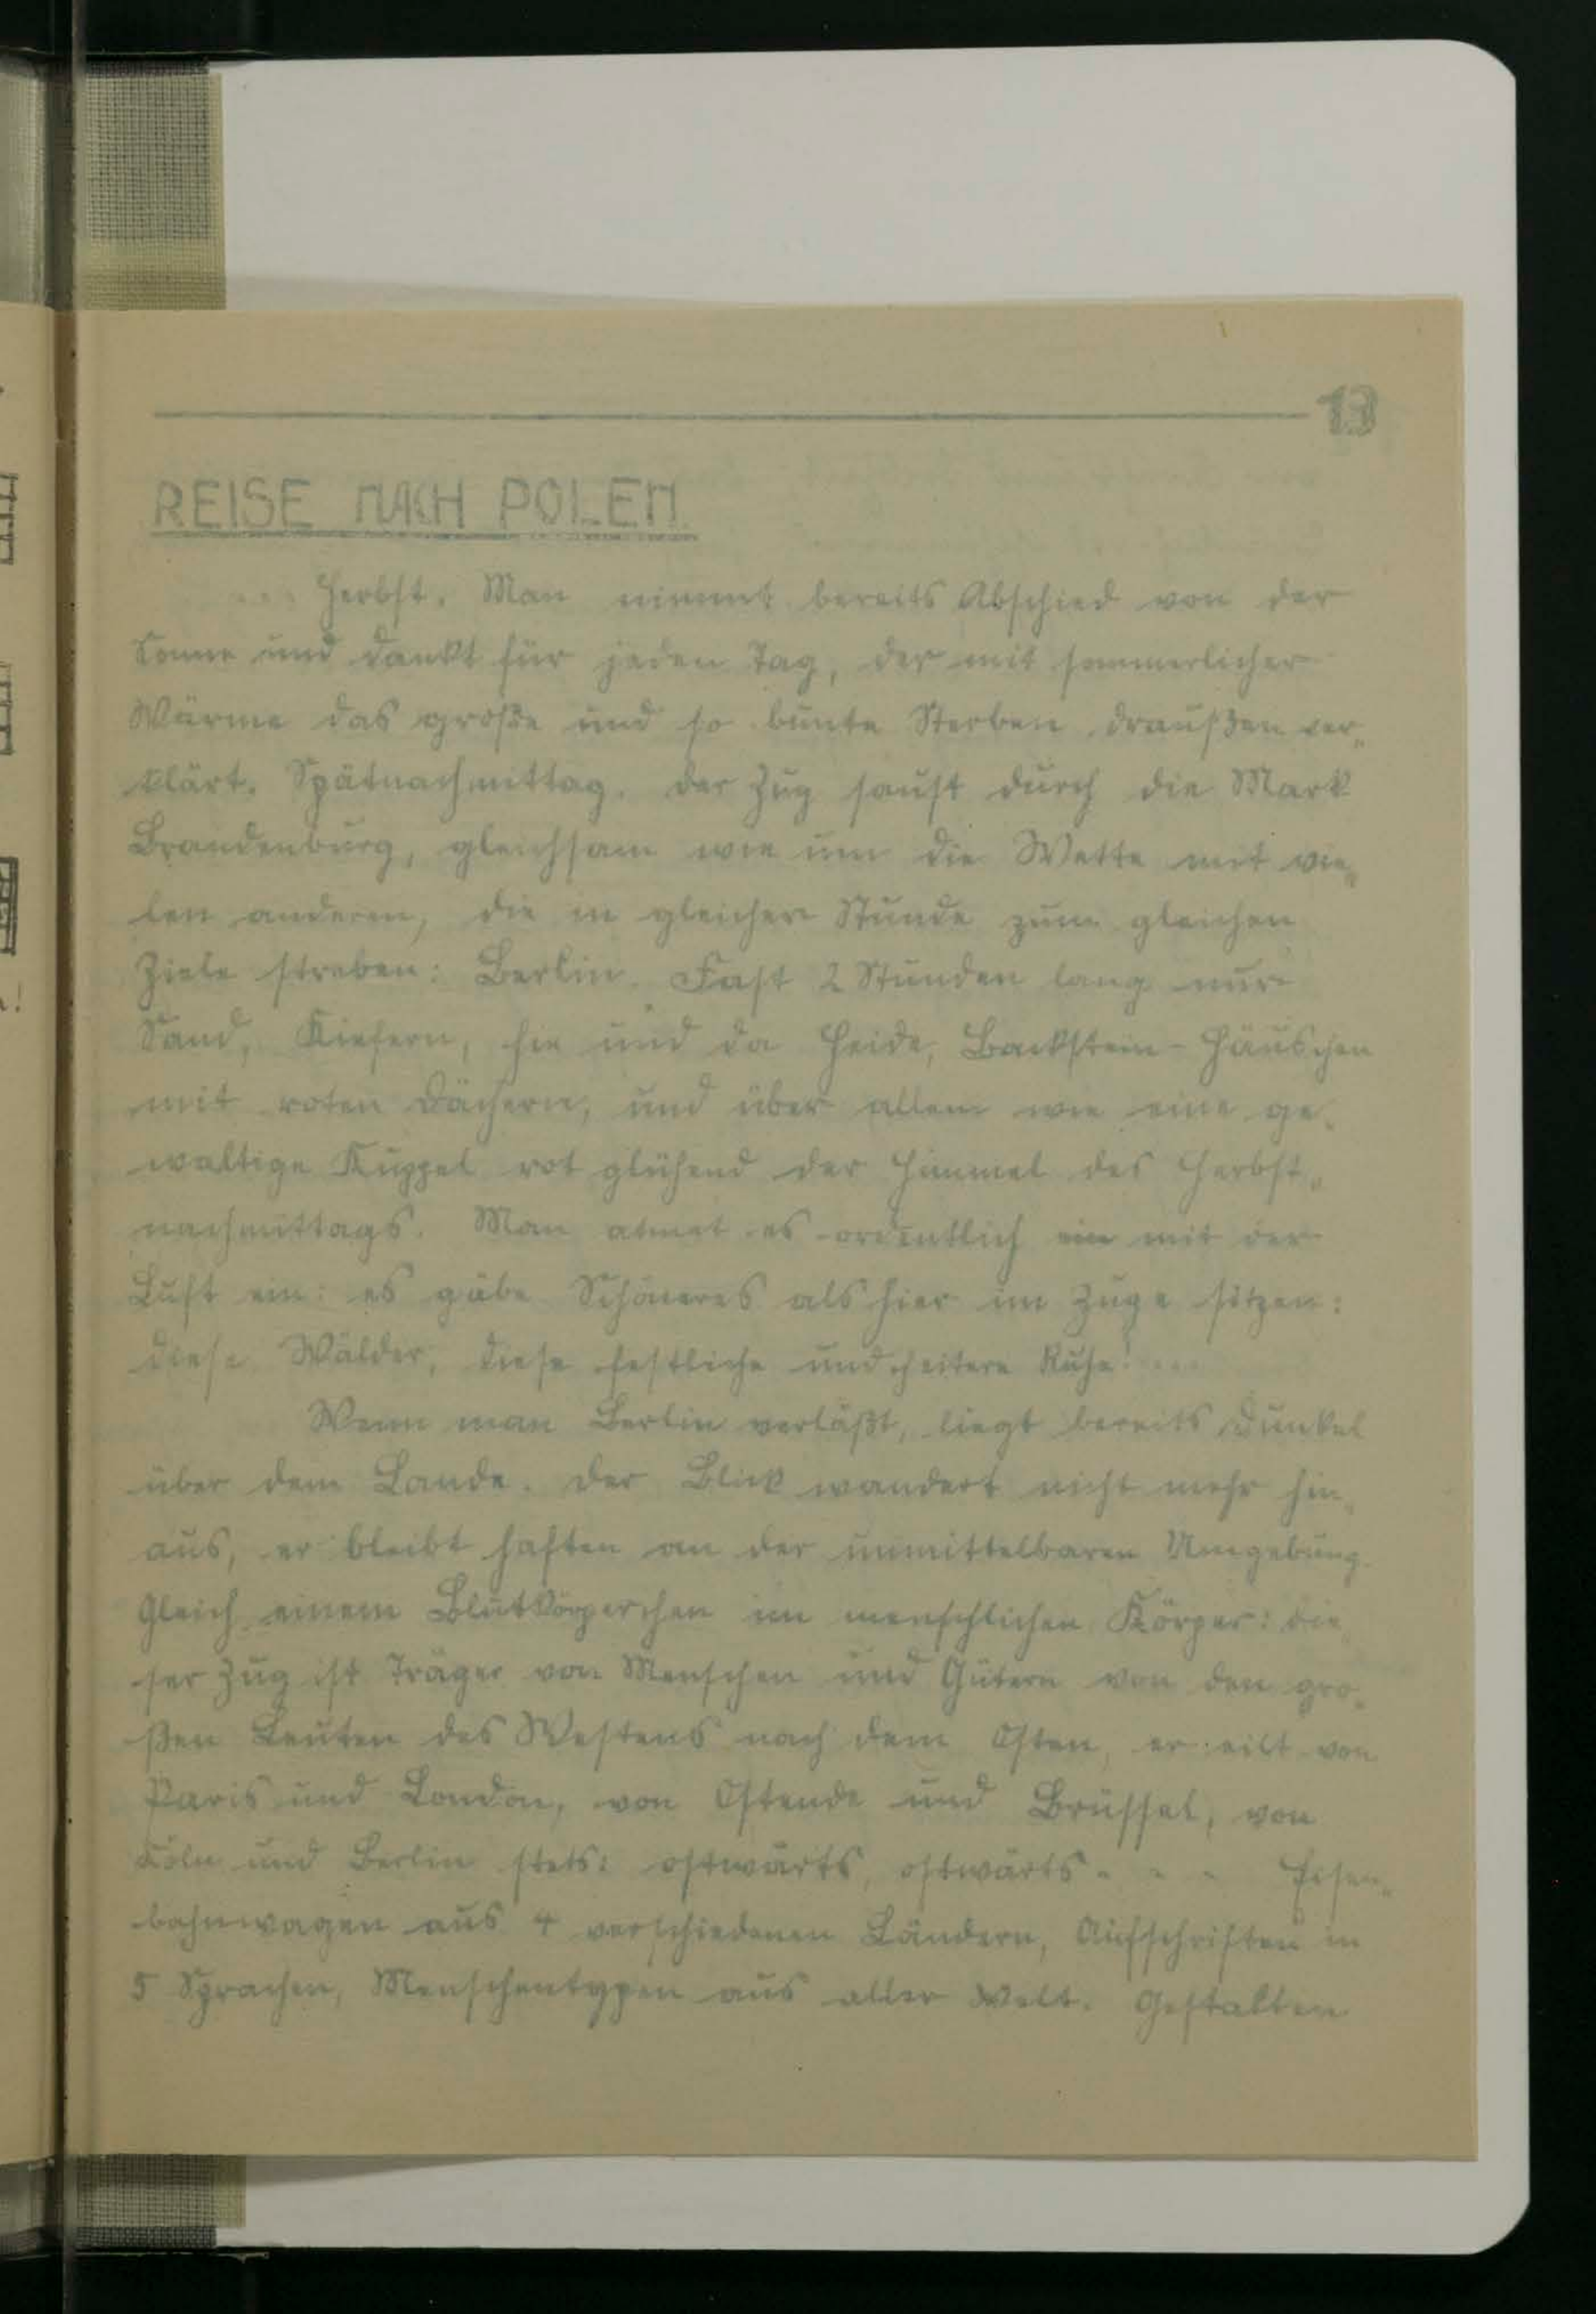 13
REISE NACH POLEN
... Herbst. Man nimmt bereits Abschied von der
Sonne und dankt für jeden Tag, der mit sommerlicher
Wärme das große und so bunte Sterben draußen ver„
klärt. Spätnachmittag. Der Zug saust durch die Mark
Brandenburg, gleichsam wie um die Wette mit vie„
len anderen, die in gleicher Stunde zum gleichen
Ziele streben: Berlin. Fast 2 Stunden lang nur
Sand, Kiefern, hie und da Heide, Backstein-Häuschen
mit roten Dächern, und über allem wie eine ge„
waltige Kuppel rot glühend der Himmel des Herbst„
nachmittags. Man atmet es ordentlich ein mit der
Luft ein: es gäbe Schöneres als hier im Zuge sitzen:
diese Wälder, diese festliche und heitere Ruhe! ...
Wenn man Berlin verläßt, liegt bereits Dunkel
über dem Lande. Der Blick wandert nicht mehr hin„
aus, er bleibt haften an der unmittelbaren Umgebung.
Gleich einem Blutkörperchen im menschlichen Körper: die„
ser Zug ist Träger von Menschen und Gütern von den gro„
ßen Leuten des Westens nach dem Osten, er eilt von
Paris und London, von Ostende und Brüssel, von
Köln und Berlin stets: ostwärts, ostwärts . . . Eisen„
bahnwagen aus 4 verschiedenen Ländern, Aufschriften in
5 Sprachen, Menschentypen aus aller Welt. Gestalten